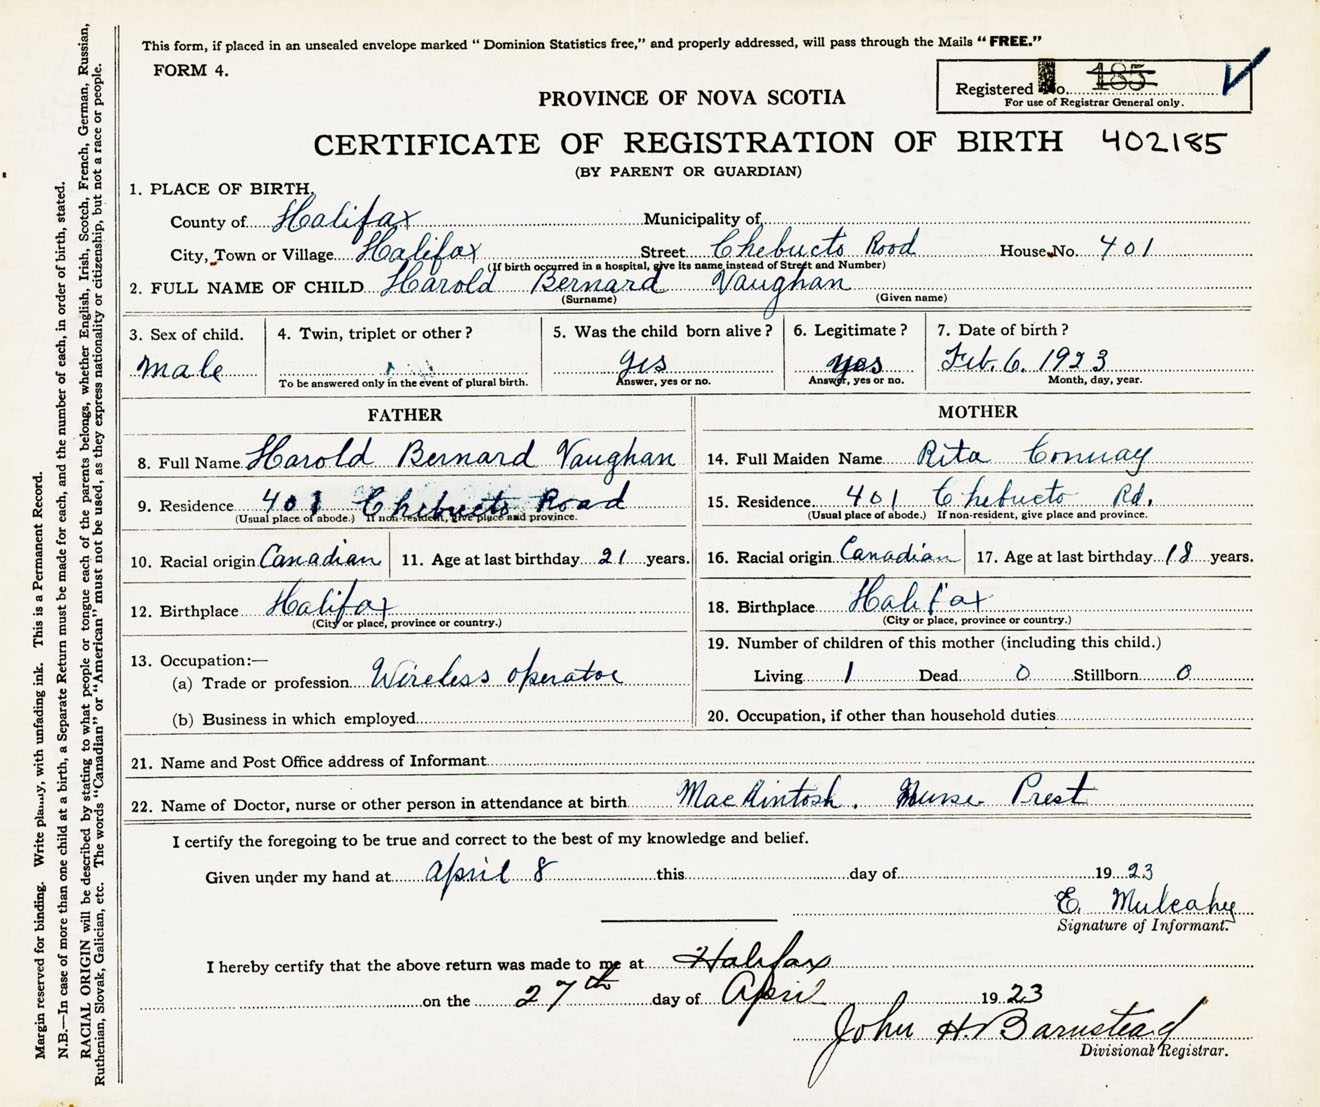 This form, if placed in an unsealed envelope marked “ Dominion Statistics free,” and properly addressed, will pass through the Mails “ FREE.”
FORM 4.
Registered No. 185
For use of Registrar General only.
PROVINCE OF NOVA SCOTIA
CERTIFICATE OF REGISTRATION OF BIRTH 402185
(BY PARENT OR GUARDIAN)
1. PLACE OF BIRTH.
County of Halifax Municipality of
City, Town or Village Halifax Street Chebucto Road House No. 401
(If birth occurred in a hospital, give its name instead of Street and Number)
2. FULL NAME OF CHILD Harold Bernard Vaughan
(Surname) (Given name)
3. Sex of child. 4. Twin, triplet or other ? 5. Was the child born alive ? 6. Legitimate ? 7. Date of birth ?
Male yes yes Feb. 6. 1923
To be answered only in the event of plural birth. Answer, yes or no. Answer, yes or no. Month, day, year.
FATHER MOTHER
8. Full Name Harold Bernard Vaughan 14. Full Maiden Name Rita Conway
9. Residence 401 Chebucto Road 15. Residence 401 Chebucto Rd.
(Usual place of abode.) If non-resident, give place and province. (Usual place of abode.) If non-resident, give place and province.
10. Racial origin Canadian 11. Age at last birthday 21 years. 16. Racial origin Canadian 17. Age at last birthday 18 years.
12. Birthplace Halifax 18. Birthplace Halifax
(City or place, province or country.) (City or place, province or country.)
13. Occupation:— 19. Number of children of this mother (including this child.)
(a) Trade or profession Wireless operator Living 1 Dead 0 Stillborn 0
(b) Business in which employed 20. Occupation, if other than household duties
21. Name and Post Office address of Informant
22. Name of Doctor, nurse or other person in attendance at birth MacKintosh. Nurse Prest
I certify the foregoing to be true and correct to the best of my knowledge and belief.
Given under my hand at April 8 this day of 1923
E. Mulcahy
Signature of Informant.
I hereby certify that the above return was made to me at Halifax
on the 27th day of April 1923
John H. Barnstead
Divisional Registrar.
Margin reserved for binding. Write plainly, with unfading ink. This is a Permanent Record.
N.B.—In case of more than one child at a birth, a Separate Return must be made for each, and the number of each, in order of birth, stated.
RACIAL ORIGIN will be described by stating to what people or tongue each of the parents belongs, whether English, Irish, Scotch, French, German, Russian,
Ruthenian, Slovak, Galician, etc. The words “Canadian” or “American” must not be used, as they express nationality or citizenship, but not a race or people.